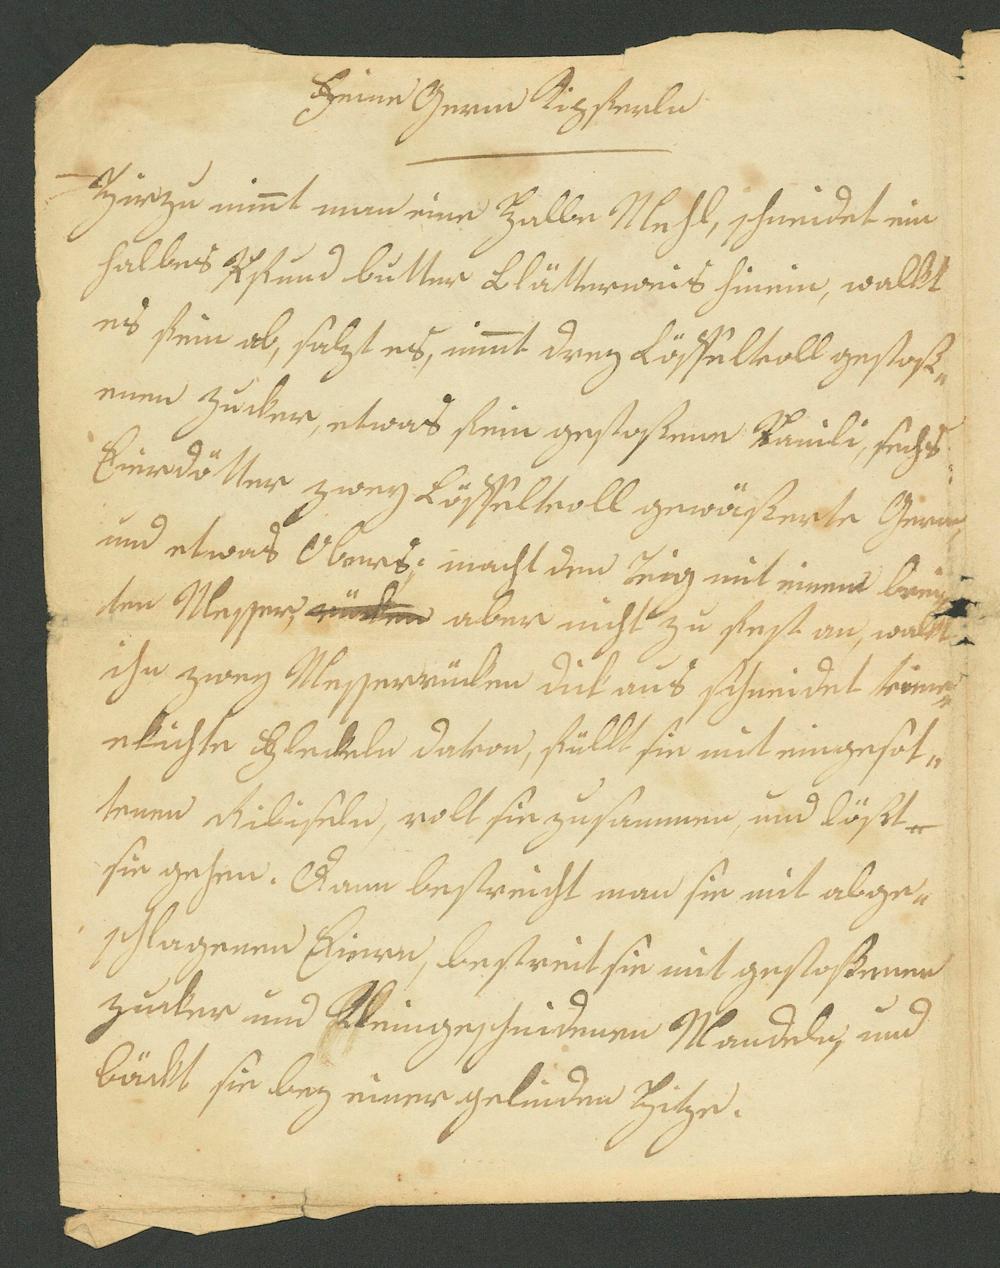 Feine Germ Kipferln
Hirzu nim̄t man eine Halbe Mehl, schneidet ein
halbes Pfund butter Blätterweis hinein, walkt
es fein ab, salzt es, nim̄t drey Löffeltvoll gestoß„
enen Zucker, etwas fein gestoßene Vanili, sechs
Eierdötter zwey Löffeltvoll gewäßerte Germ,
und etwas Obers; macht den Teig mit einem brei„
ten Messer, rücken aber nicht zu fest an, walkt
ihn zwey Messerrücken dick aus schneidet
ekichte Fleckeln davon, füllt sie mit eingesot„
tenen Ribiseln, rolt sie zusammen, und läßt
sie gehen. Dann bestreicht man sie mit abge„
schlagenen Eiern, bestreut sie mit gestoßenen
Zucker und Kleingeschnidenen Mandeln, und
bäckt sie bey einer gelinden Hitze.